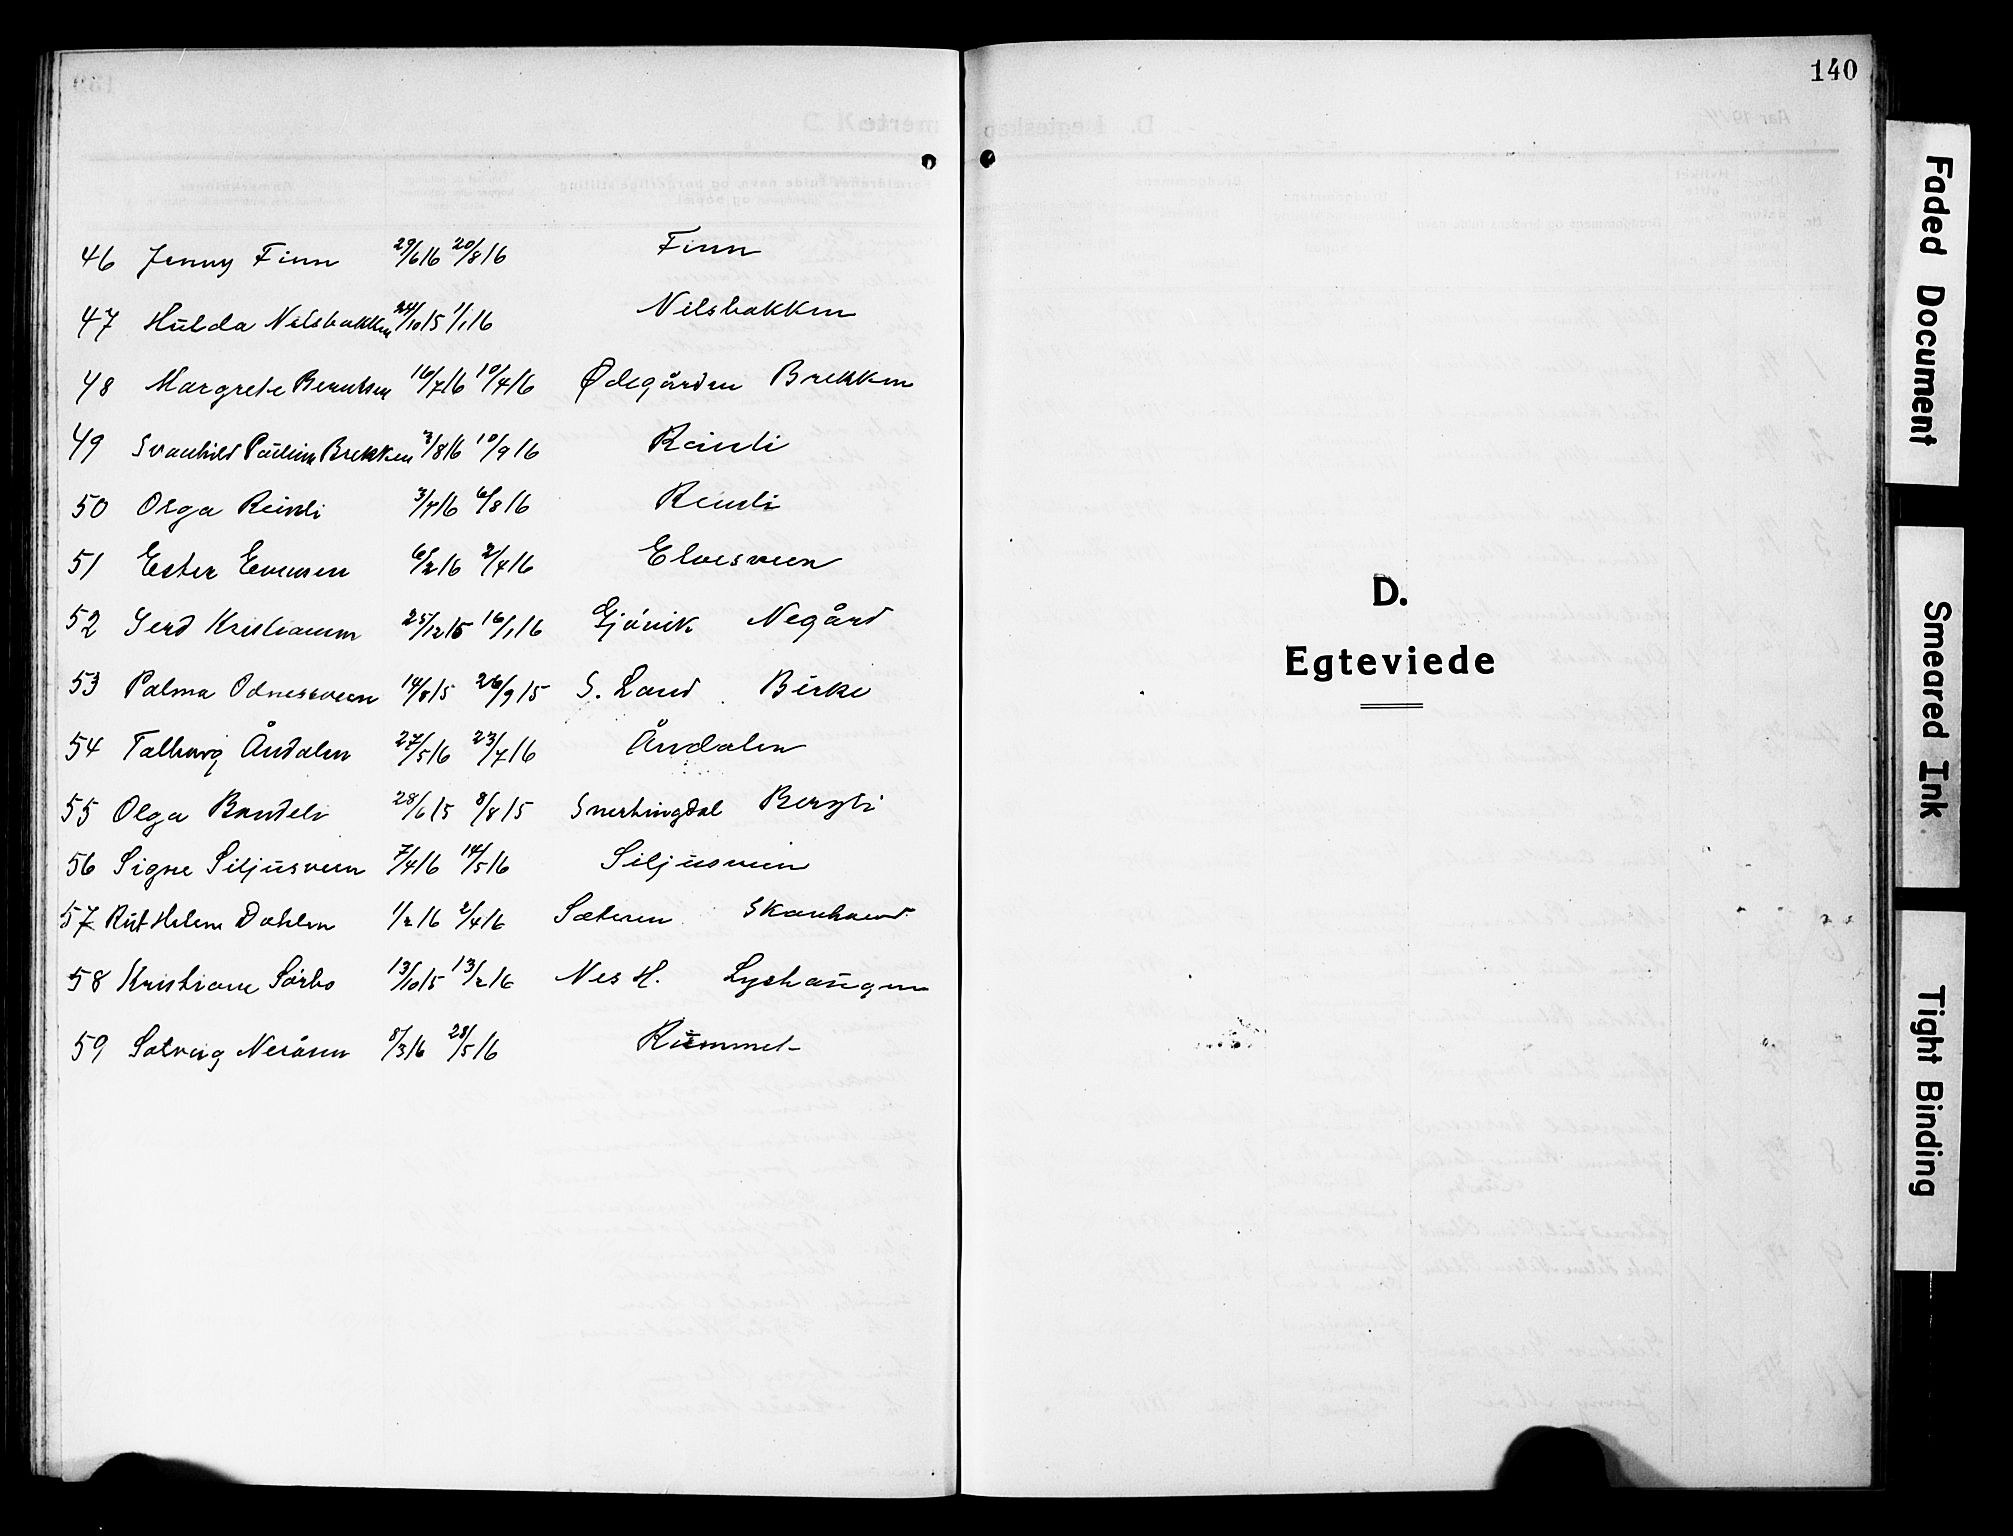 46 Jenny Finn 29/6 16 20/8 16 Finn
47 Hulda Nilsbakken 24/10 15 1/1 16 Nilsbakken
48 Margrete Berntsen 16/7 16 10/4 16 Ødegården Brekken
49 Svanhild Pauline Brekken 3/8 16 10/9 16 Reinli
50 Olga Reinli 3/4 16 6/8 16 Reinli
51 Ester Evensen 6/2 16 2/4 16 Elvesveen
52 Gerd Kristiansen 25/12 15 16/1 16 Gjövik Negård
53 Palma Odnessveen 14/8 15 26/9 15 S. Land Birke
54 Talborg Åndalen 27/5 16 23/7 16 Åndalen
55 Olga Bratteli 28/6 15 8/8 15 Snertingdal Bergli
56 Signe Siljusveen 7/4 16 14/5 16 Siljusveen
57 Rut Helene Dahlen 1/2 16 2/4 16 Sæteren
58 Kristiane Sörbo 13/10 15 13/2 16 Nes H. Lyshaugen
59 Solveig Neråsen 8/3 16 28/5 16 Rümmel
140
D.
Egteviede
Faded Document
Smeared Ink
Tight Binding